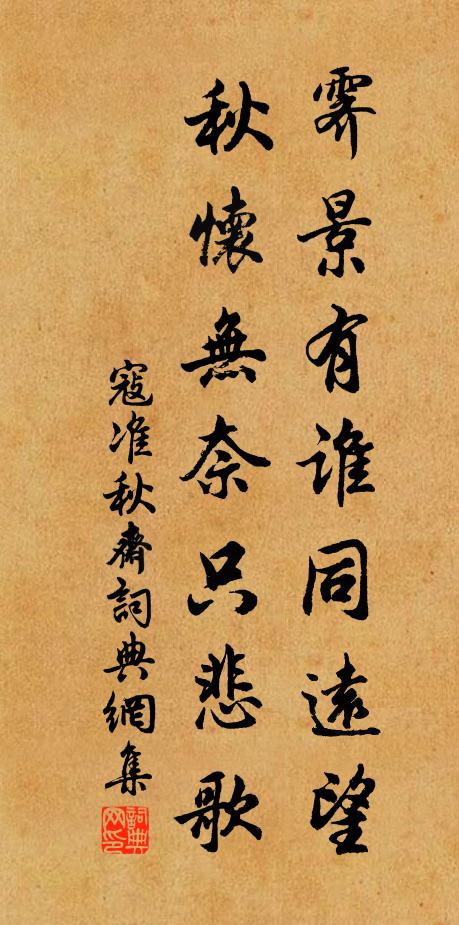 霽景有誰同遠望
秋懷無奈只悲歌
寇准秋齋詞典網集
詞典網印